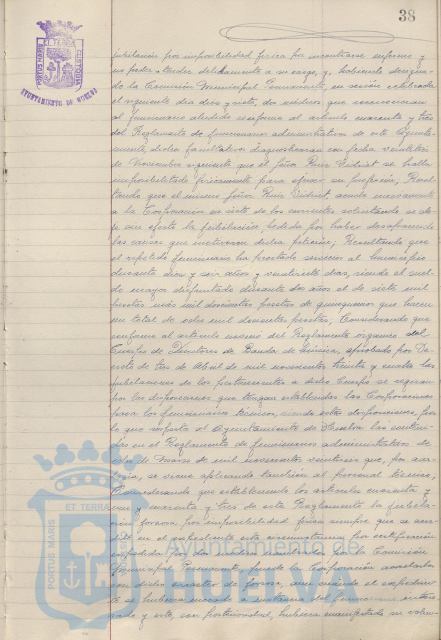 38
PORTUS MARIS ET TERRÆ CUSTODIA
AYUNTAMIENTO DE HUELVA
jubilación por imposibilidad física por encontrarse enfermo y
no poder atender debidamente a su cargo, y, habiendo designa-
do la Comisión Municipal Permanente, en sesión celebrada
el siguiente día diez y siete, dos médicos que reconocieran
al funcionario aludido conforme al artículo cuarenta y tres
del Reglamento de funcionarios administrativos de este Ayunta-
miento, dichos facultativos diagnosticaron con fecha veintitres
de Noviembre siguiente que el señor Ruiz Vidriet se halla
imposibilitado físicamente para ejercer su profesión; Resul-
tando que el mismo señor Ruiz Vidriet, acude nuevamente
a la Corporación en siete de los corrientes solicitando se de-
je sin efecto la jubilación pedida por haber desaparecido
las causas que motivaron dicha petición; Resultando que
el repetido funcionario ha prestado servicios al Municipio
durante diez y seis años y veintisiete días, siendo el suel-
do mayor disfrutado durante dos años el de siete mil
pesetas más mil doscientas pesetas de quinquenios que hacen
un total de ocho mil doscientas pesetas; Considerando que
conforme al artículo noveno del Reglamento orgánico del
Cuerpo de Directores de Banda de Música, aprobado por De-
creto de tres de Abril de mil novecientos treinta y cuatro las
jubilaciones de los pertenecientes a dicho Cuerpo se regirán
por las disposiciones que tengan establecidas las Corporaciones
para los funcionarios técnicos, siendo estas disposiciones, por
lo que respecta al Ayuntamiento de Huelva las conteni-
das en el Reglamento de funcionarios administrativos de
de Marzo de mil novecientos veintiseis que, por ana-
logía, se viene aplicando también al personal técnico;
Considerando que estableciendo los artículos cuarenta y
uno y cuarenta y tres de este Reglamento la jubila-
ción forzosa por imposibilidad física siempre que se acre-
dite en el expediente esta circunstancia por certificación
expedida por los médicos que designe la Comisión
Municipal Permanente, puede la Corporación acordarla
con dicho carácter de forzosa, aun cuando el expedien-
te se hubiera incoado a instancia del funcionario intere-
sado y este, con posterioridad, hubiera manifestado su volun-
PORTUS MARIS ET TERRÆ
Ayuntamiento de
HUELVA